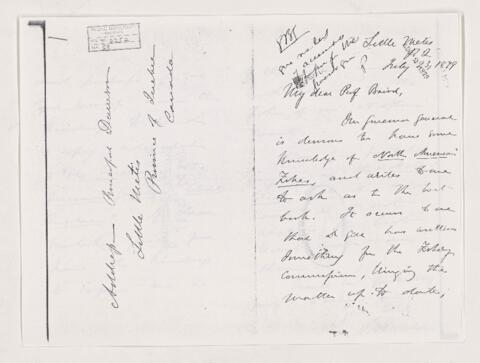 Address Principal Dawson
Little Metis
Province of Quebec
Canada
Little Metis
July 23, 1879
My dear Prof Baird,
Our Governor General
is desirous to have some
knowledge of North American
Fishes, and writes to me
to ask as to the best
book. It occurs to me
that Dr Gill has written
something for the Fishery
Commission, bringing the
matter up to date,